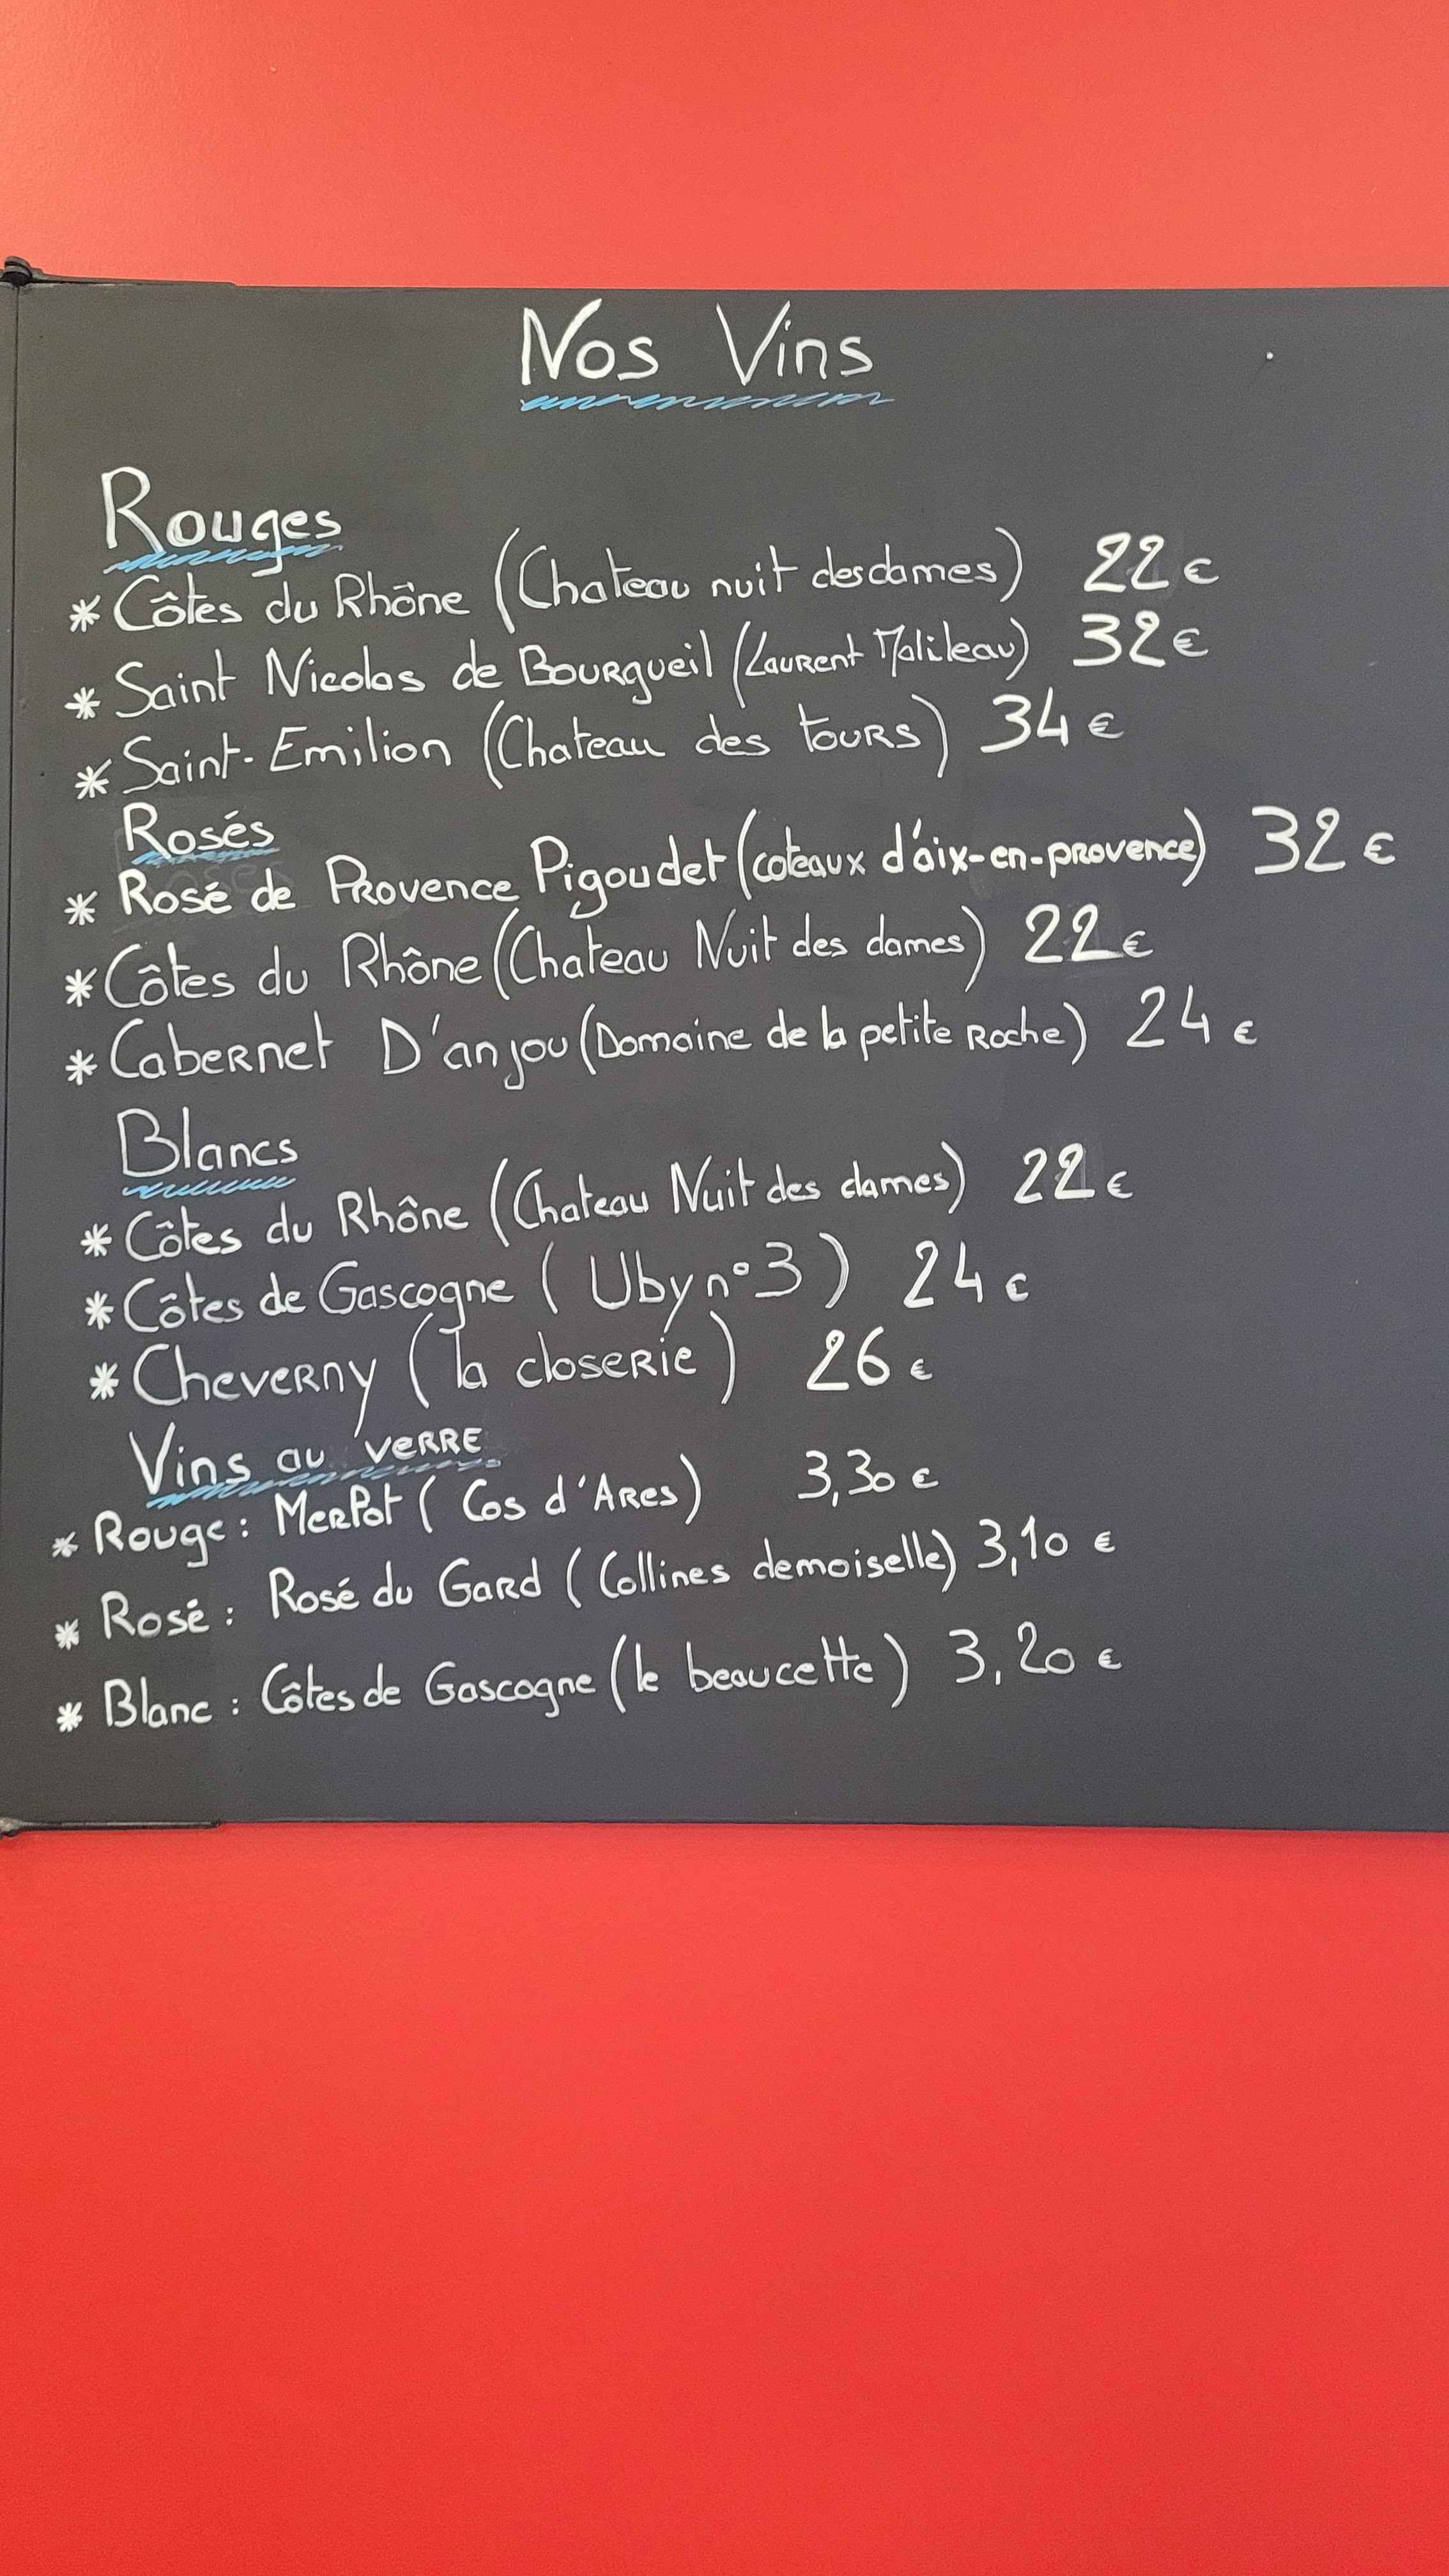 Nos Vins
Rouges
* Côtes du Rhône (Chateau nuit des dames) 22 €
* Saint Nicolas de Bourgueil (Laurent Malileau) 32 €
* Saint-Emilion (Chateau des tours) 34 €
Rosés
* Rosé de Provence Pigoudet (coteaux d'aix-en-provence) 32 €
* Côtes du Rhône (Chateau Nuit des dames) 22 €
* Cabernet D'anjou (Domaine de la petite Roche) 24 €
Blancs
* Côtes du Rhône (Chateau Nuit des dames) 22 €
* Côtes de Gascogne (Uby n°3) 24 €
* Cheverny (la closerie) 26 €
Vins au verre
* Rouge : Merlot (Cos d'Ares) 3,30 €
* Rosé : Rosé du Gard (Collines demoiselle) 3,10 €
* Blanc : Côtes de Gascogne (le beaucette) 3,20 €